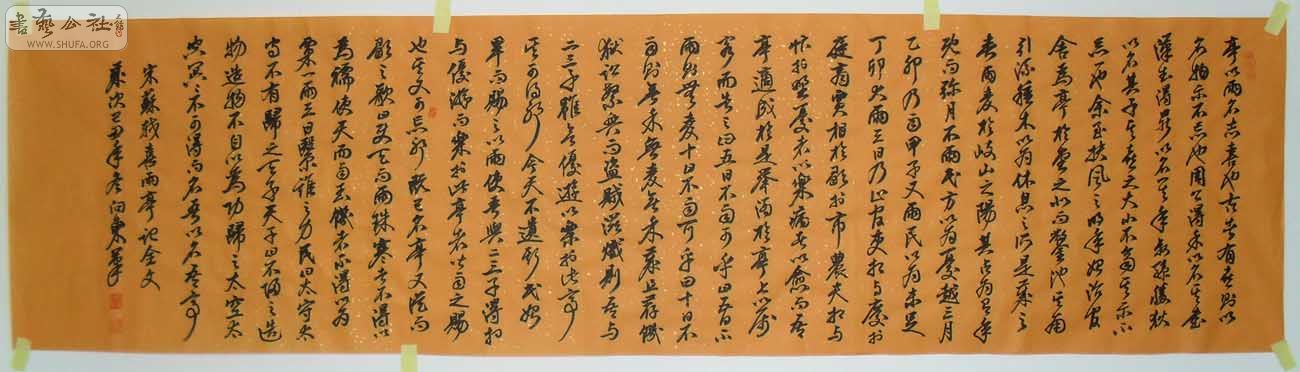 亭以雨名志喜也古者有喜則以
名物示不忘也周公得禾以名其書
漢武得鼎以名其年叔孫勝狄
以名其子其喜之大小不齊其示不
忘一也余至扶風之明年始治官
舍為亭於堂之北而鑿池其南
引流種木以為休息之所是歲之
春雨麥於岐山之陽其占為有年
既而彌月不雨民方以為憂越三月
乙卯乃雨甲子又雨民以為未足
丁卯大雨三日乃止官吏相與慶於
庭商賈相與歌於市農夫相與
忭於野憂者以樂病者以愈而吾
亭適成於是舉酒於亭上以属
客而告之曰五日不雨可乎曰五日不
雨則無麥十日不雨可乎曰十日不
雨則無禾無麥無禾歲且荐饑
獄訟繁興而盜賊滋熾則吾與
二三子雖欲優遊以樂於此亭
其可得耶今天不遺斯民始
旱而賜之以雨使吾與二三子得相
與優游而樂於此亭者皆雨之賜
也其又可忘耶既以名亭又從而
歌之歌曰使天而雨珠寒者不得以
為襦使天而雨玉饑者不得以為
粟一雨三日繄誰之力民曰太守太
守不有歸之天子天子曰不然歸之造
物造物不自以為功歸之太空太
空冥冥不可得而名吾以名吾亭
宋蘇軾喜雨亭記全文
歲次己丑年冬向東書
書藝公社
WWW.SHUFA.ORG